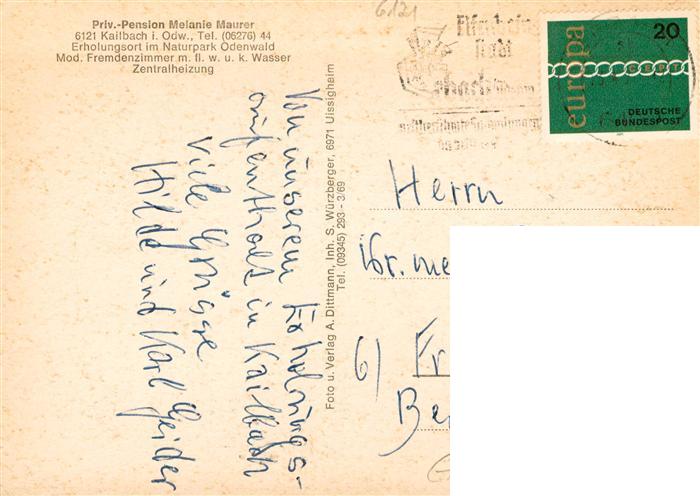 Priv.-Pension Melanie Maurer
6121 Kailbach i. Odw., Tel. (06276) 44
Erholungsort im Naturpark Odenwald
Mod. Fremdenzimmer m. fl. w. u. k. Wasser
Zentralheizung
Von unserem Erholungs-
aufenthalt in Kailbach
viele Grüsse
Hilde und Karl Geider
Foto u. Verlag A. Dittmann, Inh. S. Würzberger, 6971 Uissigheim
Tel. (09345) 293 - 3/69
6121
Elfenbein
stadt
europa
20
CEPT
DEUTSCHE
BUNDESPOST
Herrn
Dr. me
61 Fr
Be